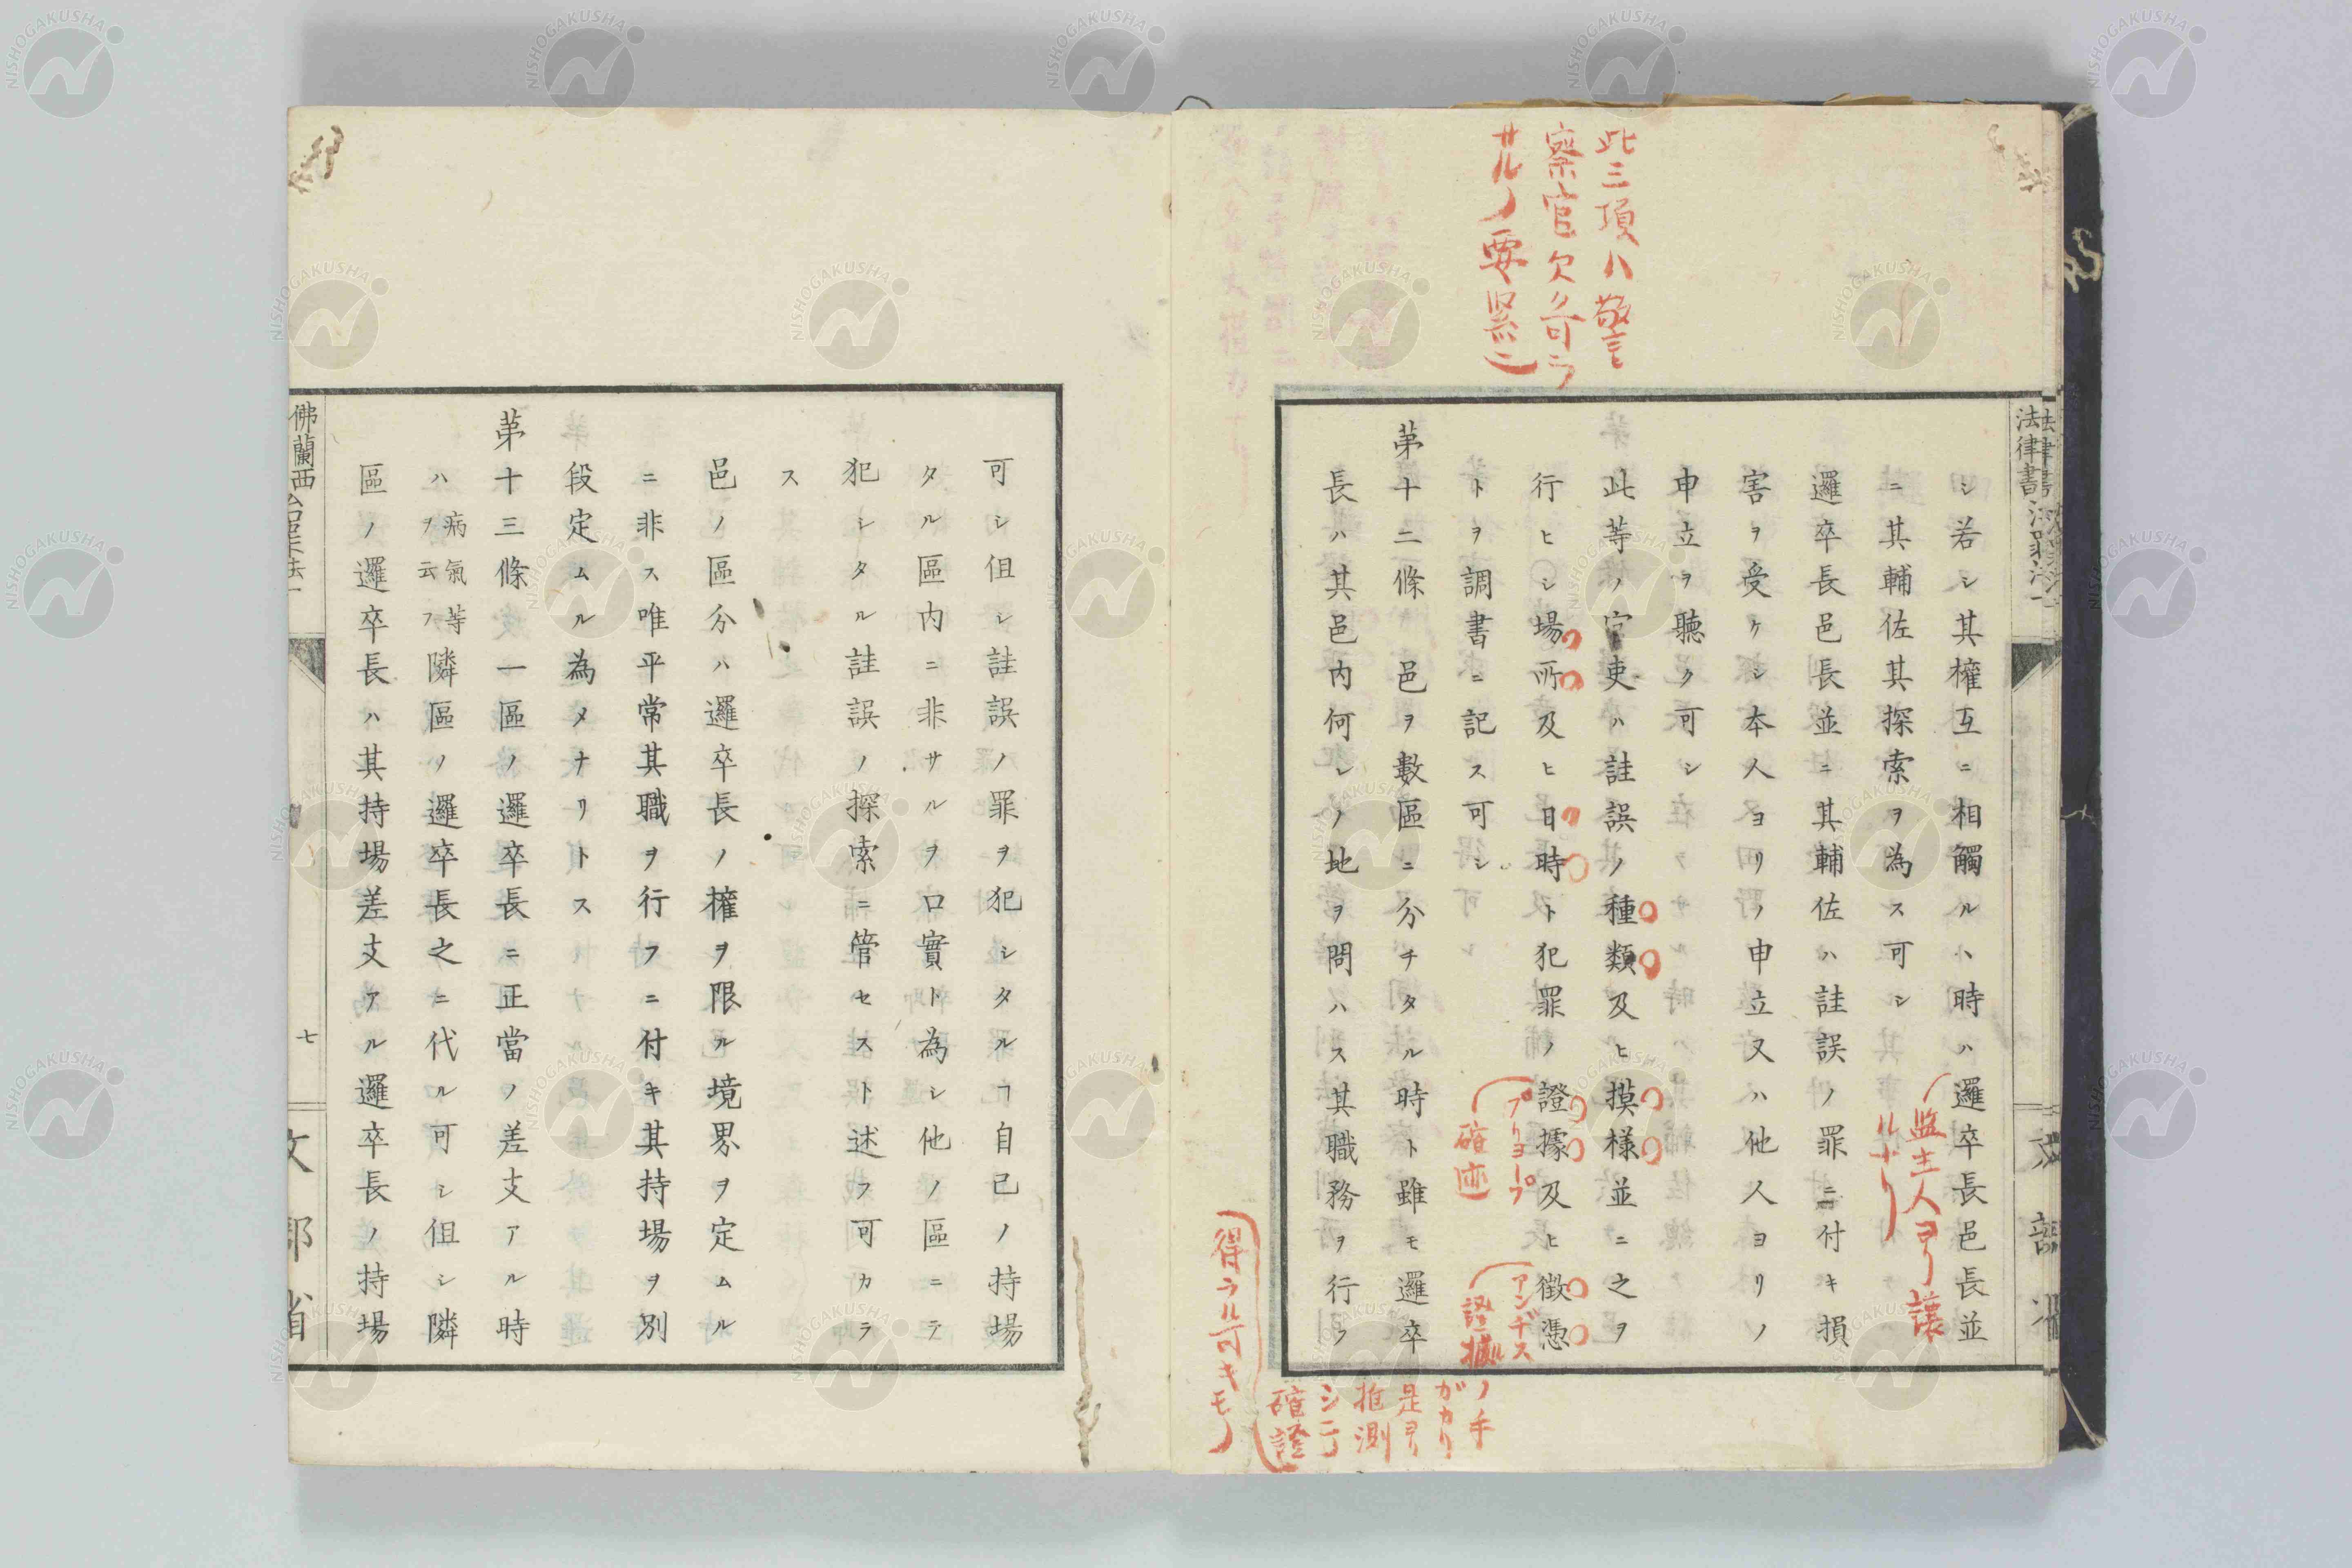 此三項ハ警
察官欠ク可ラ
サルノ要
シ若シ其權互ニ相觸ルヽ時ハ邏卒長邑長並
ニ其輔佐其探索ヲ為ス可シ
邏卒長邑長並ニ其輔佐ハ詿誤ノ罪ニ付キ損
害ヲ受ケシ本人ヨリノ申立又ハ他人ヨリノ
申立ヲ聽ク可シ
此等ノ官吏ハ詿誤ノ種類及ヒ摸樣並ニ之ヲ
行ヒシ場所及ヒ日時ト犯罪ノ證據及ヒ徴憑
トヲ調書ニ記ス可シ
苐十二條 一邑ヲ數區ニ分チタル時ト雖モ邏卒
長ハ其邑内何レノ地ヲ問ハス其職務ヲ行フ
プリヨープ
確迹
アンヂス
證據ノ手
ガカリ
是ヨリ
推測
シテ
確證
得ラル可キモノ
文部省
可シ但シ詿誤ノ罪ヲ犯シタルヿ自己ノ持場
タル區内ニ非サルヲ口實ト為シ他ノ區ニテ
犯シタル詿誤ノ探索ニ管セスト述フ可カラ
ス
邑ノ區分ハ邏卒長ノ權ヲ限ル境界ヲ定ムル
ニ非ス唯平常其職ヲ行フニ付キ其持場ヲ別
段定ムル為メナリトス
苐十三條 一區ノ邏卒長ニ正當ノ差支アル時
ハ病氣等ヲ云フ隣區ノ邏卒長之ニ代ル可シ但シ隣
區ノ邏卒長ハ其持場差支アル邏卒長ノ持場
佛蘭西
七
文部省
NISHOGAKUSHA